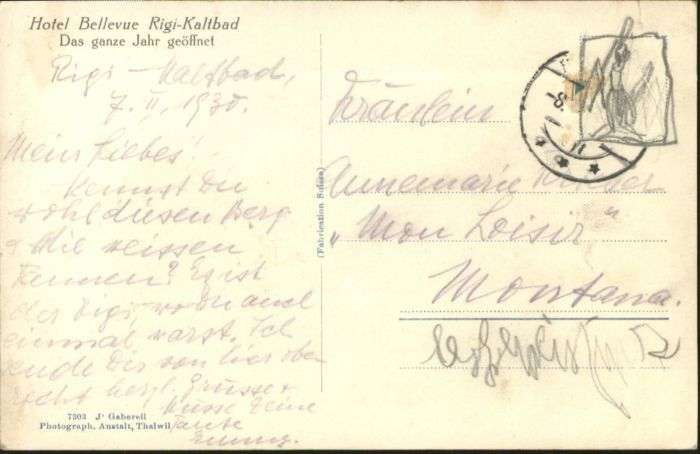 Hotel Bellevue Rigi-Kaltbad
Das ganze Jahr geöffnet
Rigi-Kaltbad,
7. II. 1930.
Mein Liebes!
Kennst Du
wohl diesen Berg
& die weissen
Tannen? Es ist
der Rigi, wo Du auch
einmal warst. Ich
sende Dir von hier oben
recht herzl. Grüsse &
Küsse Deine
Tante
7303 J. Gaberell
Photograph. Anstalt, Thalwil
(Fabrication Suisse)
-8.
II
Fräulein
Annemarie
"Mon Loisir"
Montana.